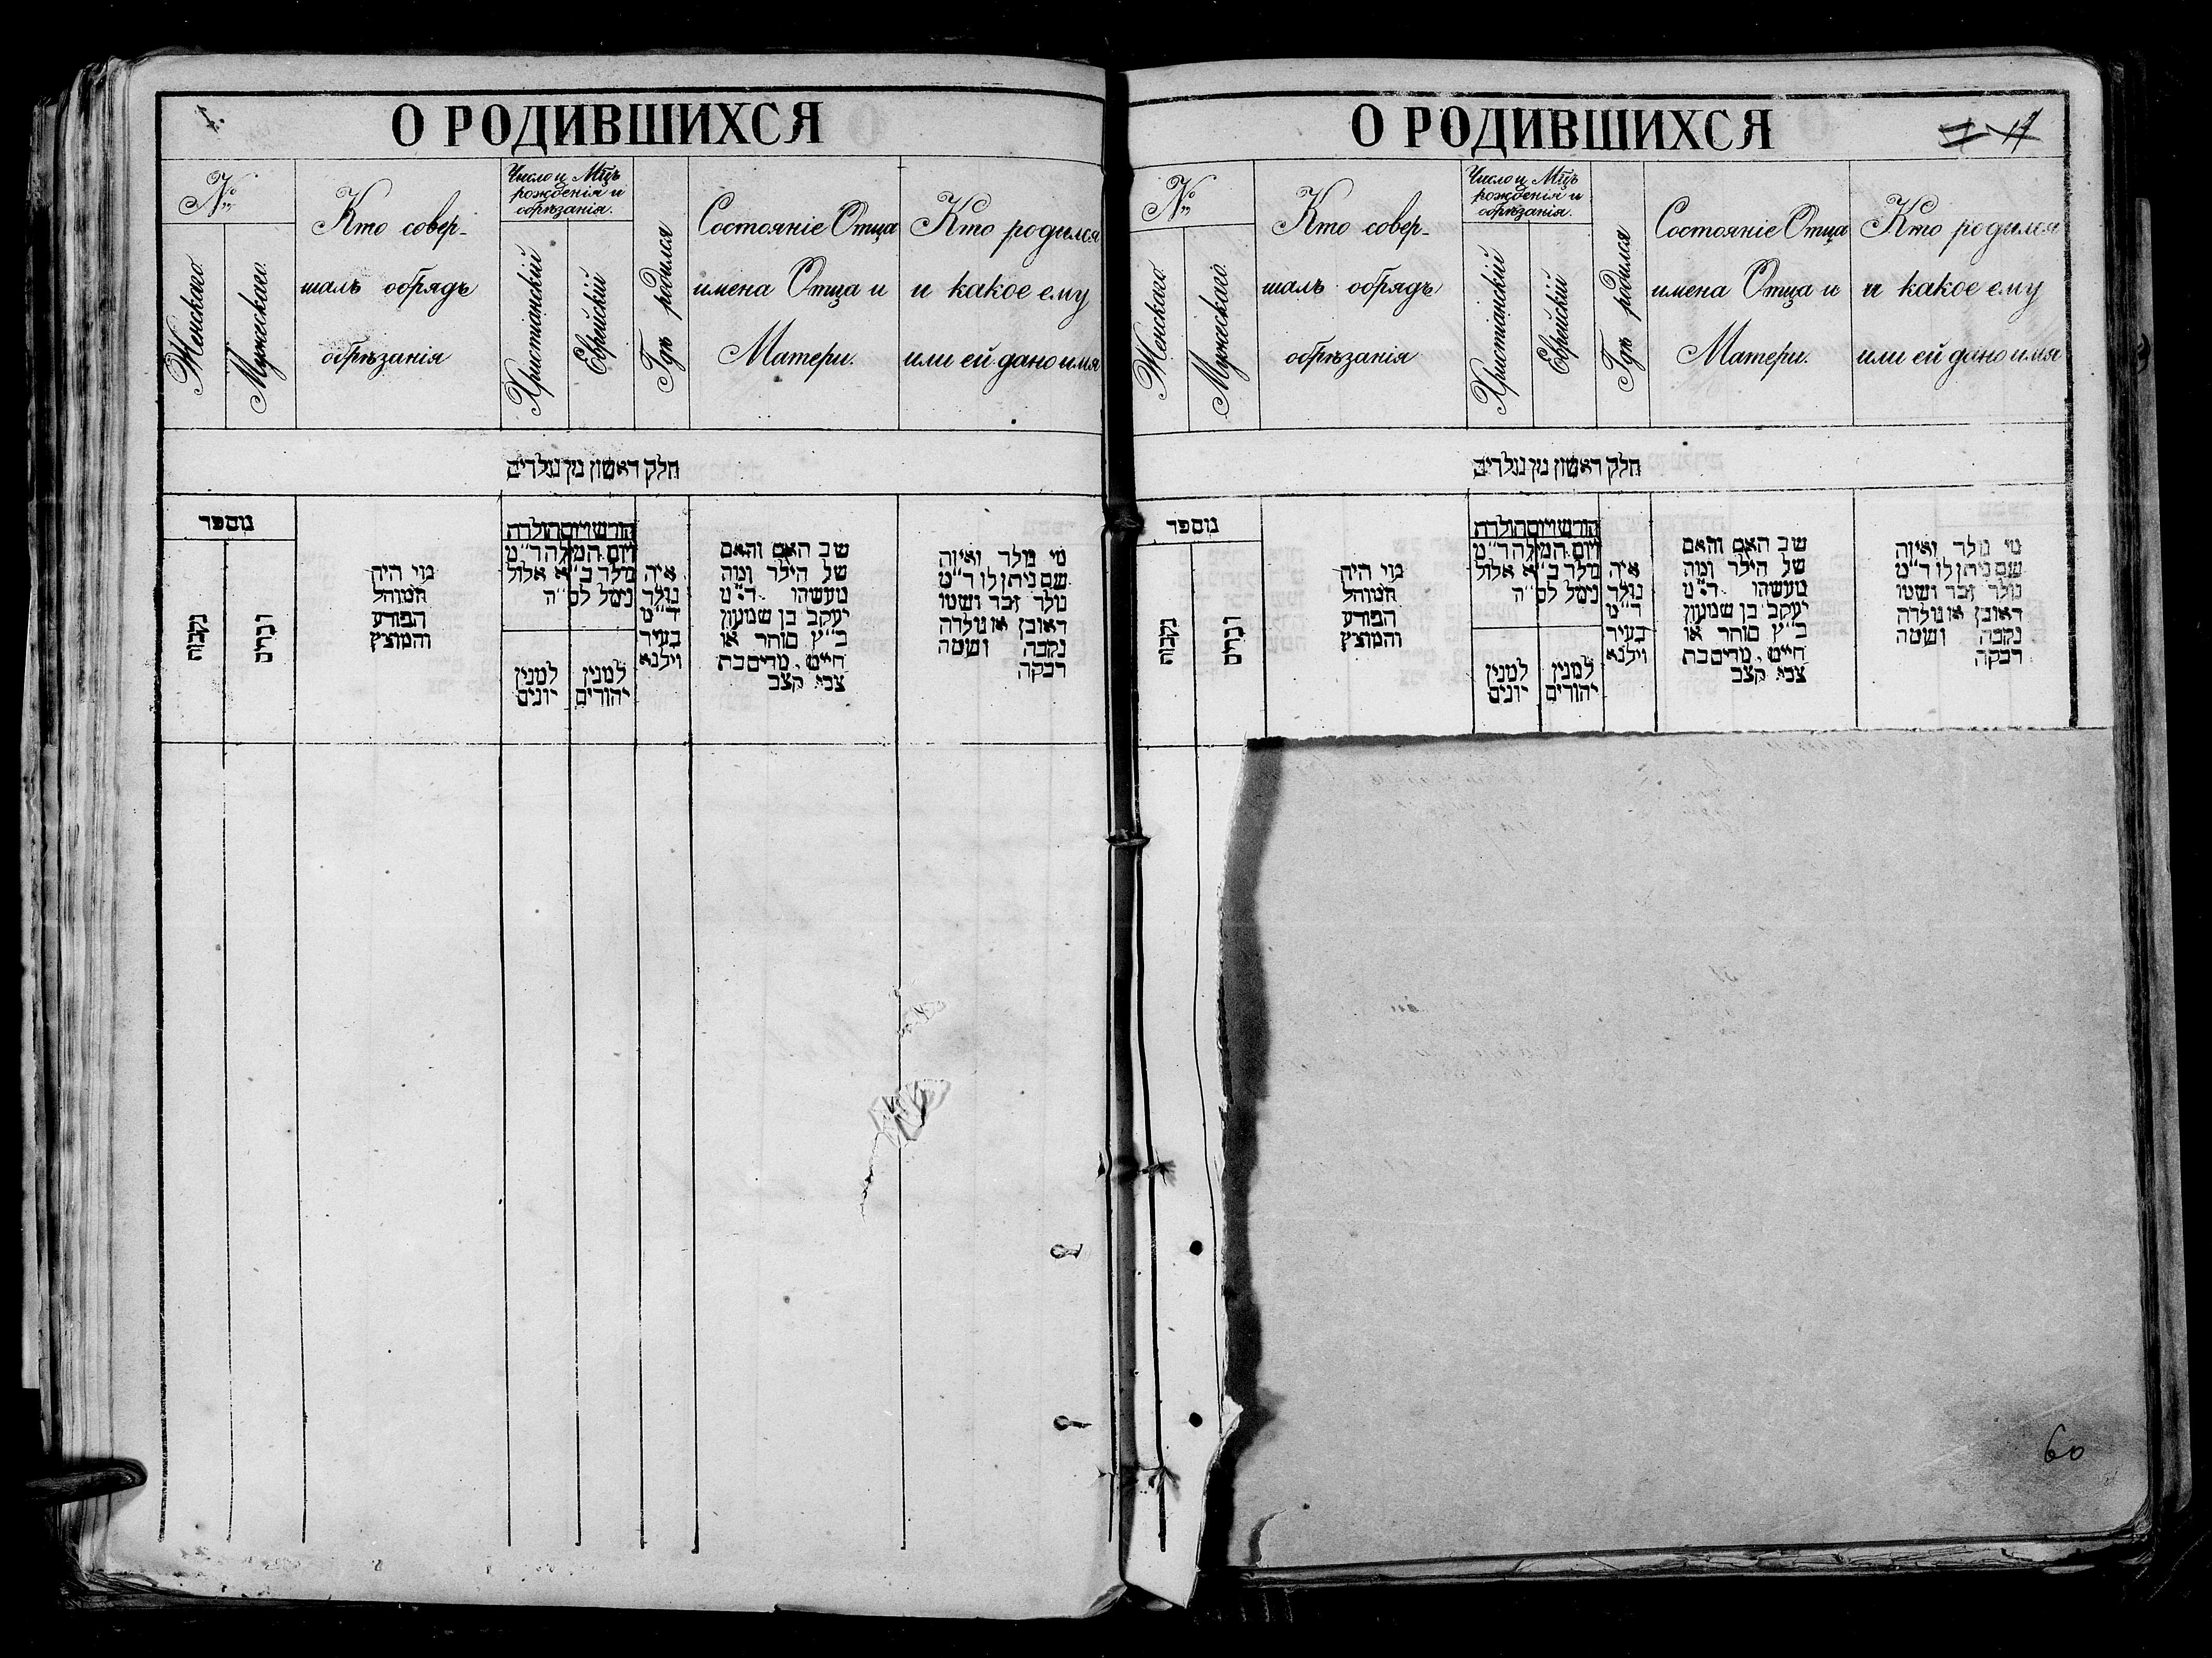 1.
О РОДИВШИХСЯ
№
Женскаго.
Мужескаго.
Кто совер-
шалъ обрядъ
обрѣзанія
Число и Мцъ
рожденія и
обрѣзанія.
Христіанскій
Еврейскій
Гдѣ родился
Состояніе Отца
имена Отца и
Матери.
Кто родился
и какое ему
или ей дано имя
חלק ראשון מן נולדים
מספר
נקבות
זכרים
מי היה
המוהל
הפורע
והמוצץ
חודש ויום הולדת
ויום המילה ד״מ
נולד כ״א אלול
נימל לס״ה
למנין
יונים
למנין
יהודים
איה
נולד
ד״מ
בעיר
וילנא
שב האם והאם
של הילד ומה
מעשהו ד״מ
יעקב בן שמעון
כ״ץ סוחר או
חייט, מרים בת
צבי קצב
מי נולד ואיזה
שם ניתן לו ד״מ
נולד זכר ושמו
ראובן או נולדה
נקבה ושמה
רבקה
О РОДИВШИХСЯ
№
Женскаго.
Мужескаго.
Кто совер-
шалъ обрядъ
обрѣзанія
Число и Мцъ
рожденія и
обрѣзанія.
Христіанскій
Еврейскій
Гдѣ родился
Состояніе Отца
имена Отца и
Матери.
Кто родился
и какое ему
или ей дано имя
חלק ראשון מן נולדים
מספר
נקבות
זכרים
מי היה
המוהל
הפורע
והמוצץ
חודש ויום הולדת
ויום המילה ד״מ
נולד כ״א אלול
נימל לס״ה
למנין
יונים
למנין
יהודים
איה
נולד
ד״מ
בעיר
וילנא
שב האם והאם
של הילד ומה
מעשהו ד״מ
יעקב בן שמעון
כ״ץ סוחר או
חייט, מרים בת
צבי קצב
מי נולד ואיזה
שם ניתן לו ד״מ
נולד זכר ושמו
ראובן או נולדה
נקבה ושמה
רבקה
60